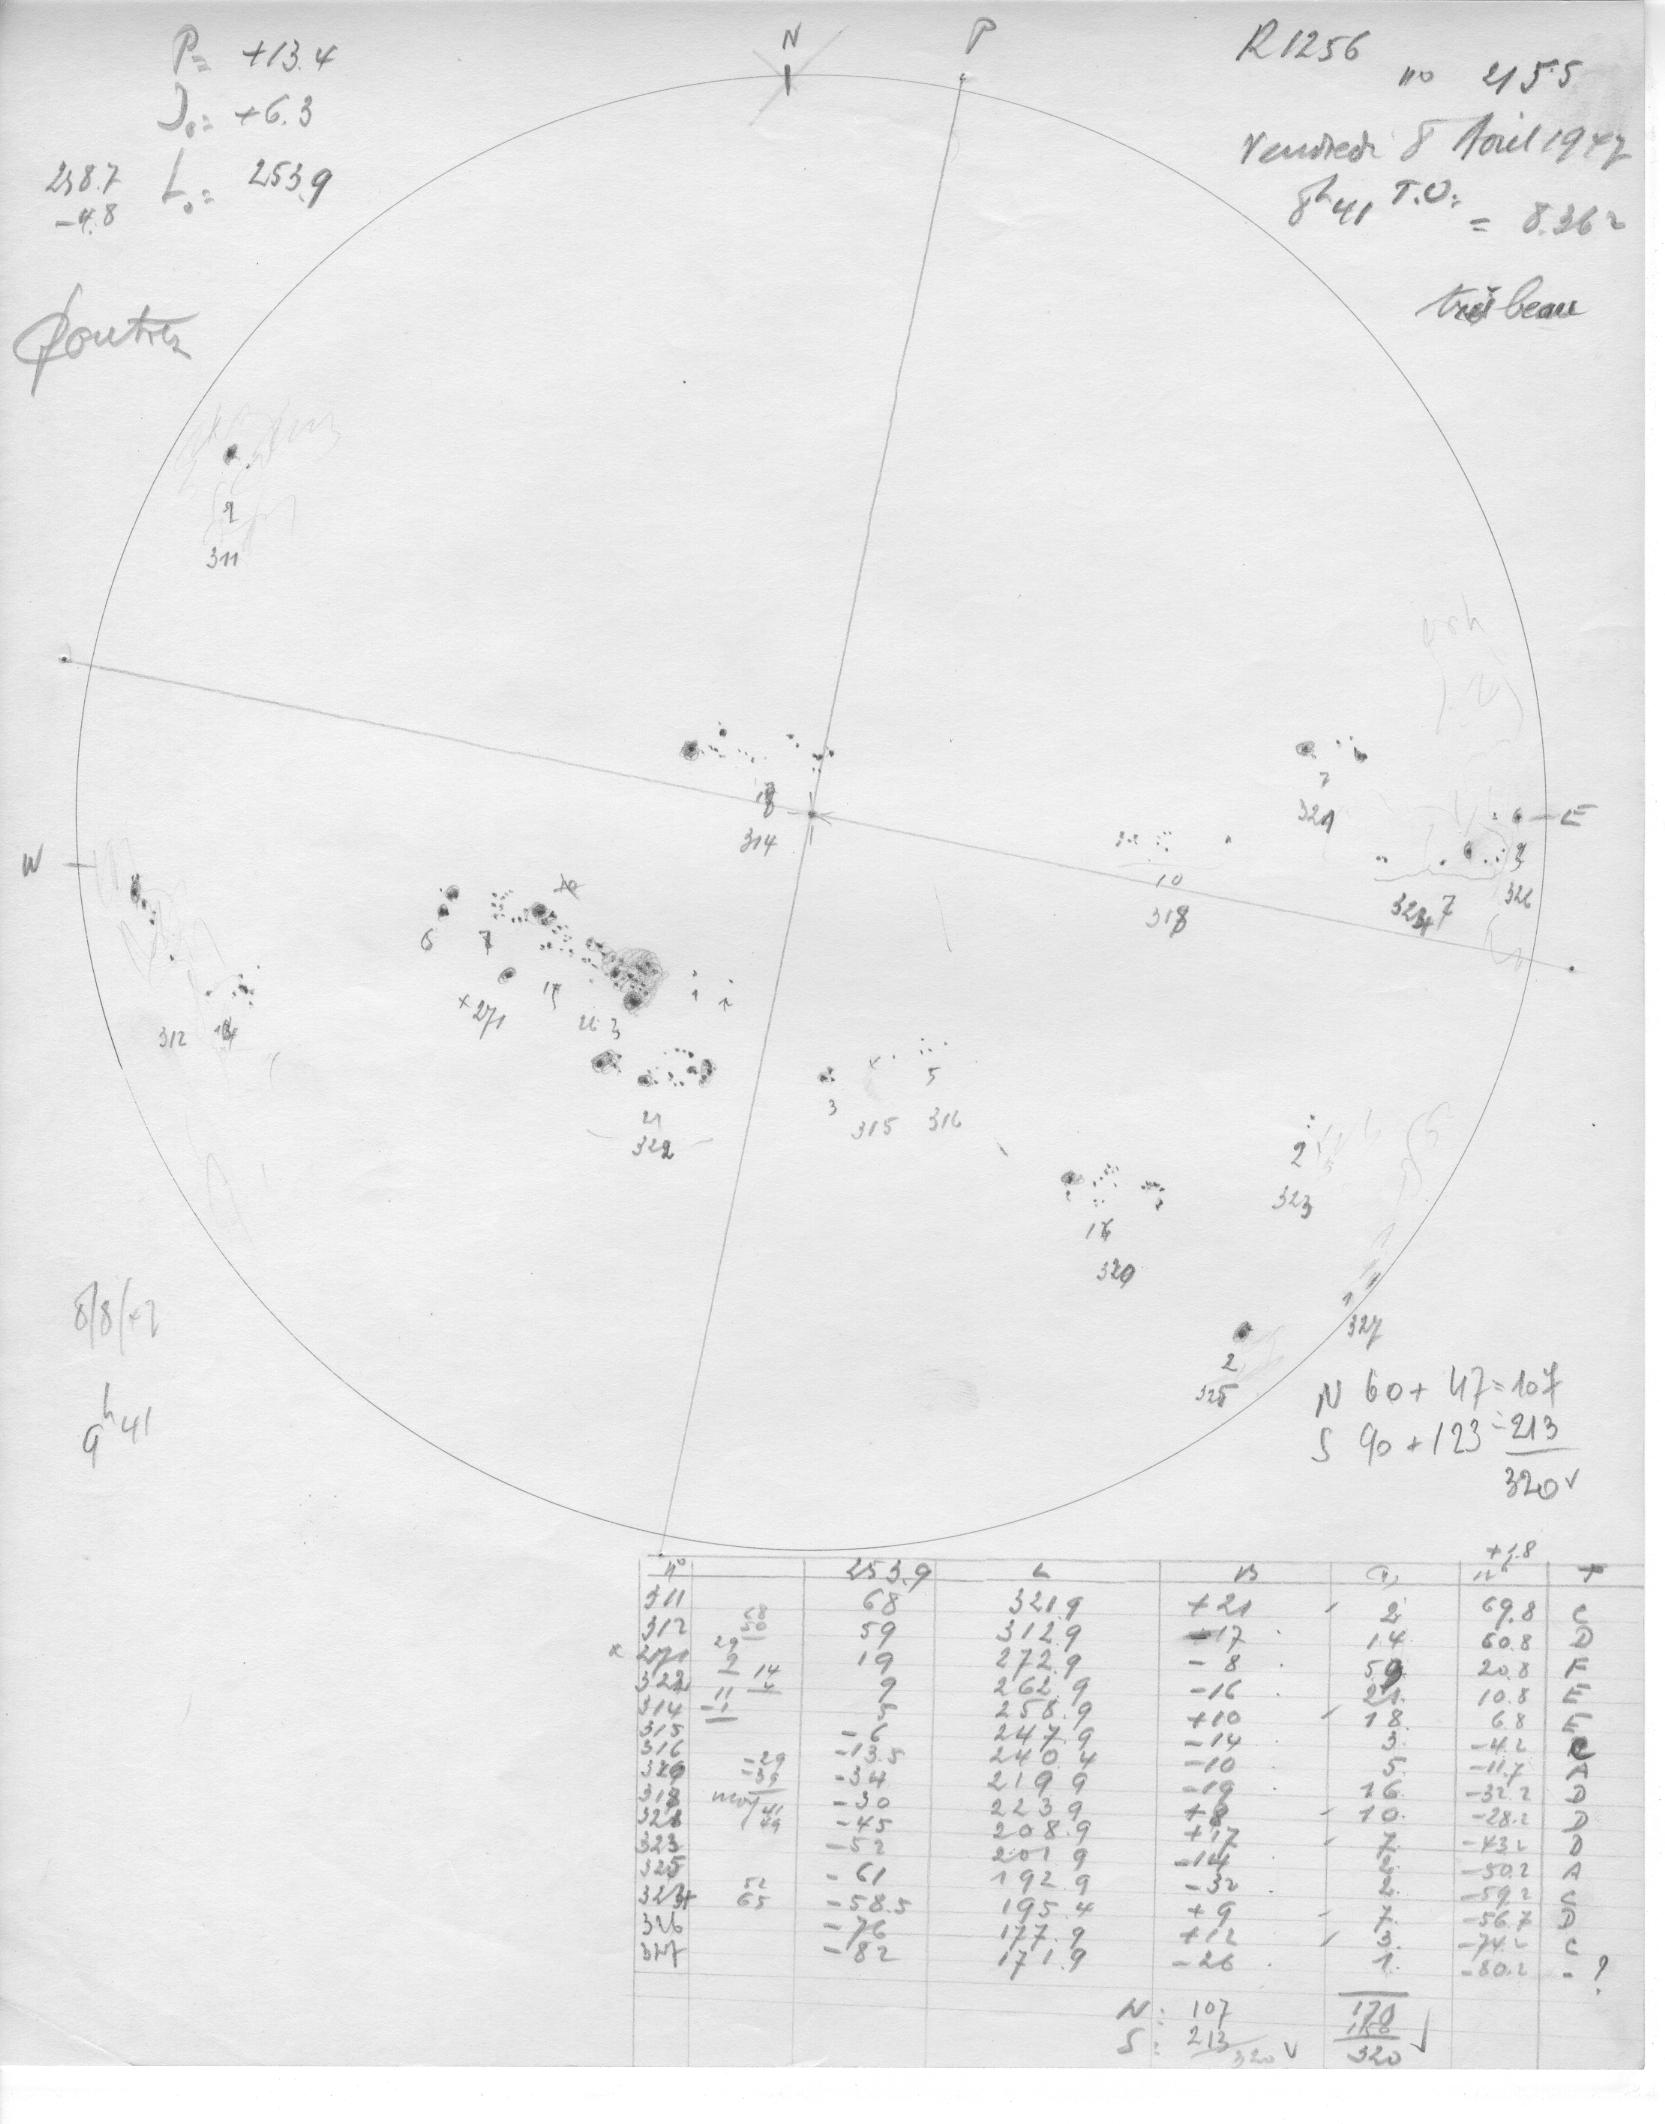 P= +13.4
N
P
R1256
no 2155
+6.3
Vendredi 8 Aoüt 1947
238.7
L₀= 253.9
-4.8
8h41 T.U.
= 8.362
très beau
2
311
E
7
321
18
314
10
318
3
326
7
W
6
7
+271
3
312
21
322
3
315
5
316
2
323
16
320
8/8/47
1
327
2
325
N 60 + 47 = 107
S 90 + 123 = 213
320 v
9h41
+1.8
n° 253.9 L B
311 68 321.9 +21 2 69.8 C
312 59 312.9 -17 14 60.8 D
271 19 272.9 -8 59 20.8 F
322 9 262.9 -16 21 10.8 E
314 5 258.9 +10 18 6.8 E
315 -6 247.9 -14 3 -4.2 C
316 -13.5 240.4 -10 5 -11.7 A
320 -34 219.9 -19 16 -32.2 D
318 -30 223.9 +8 10 -28.2 D
321 -45 208.9 +17 7 -43.2 D
323 -52 201.9 -14 2 -50.2 A
325 -61 192.9 -32 2 -59.2 C
324 -58.5 195.4 +9 7 -56.7 D
326 -76 177.9 +12 3 -74.2 C
327 -82 171.9 -26 1 -80.2 - ?
N: 107 170
S: 213 150
320 v 320